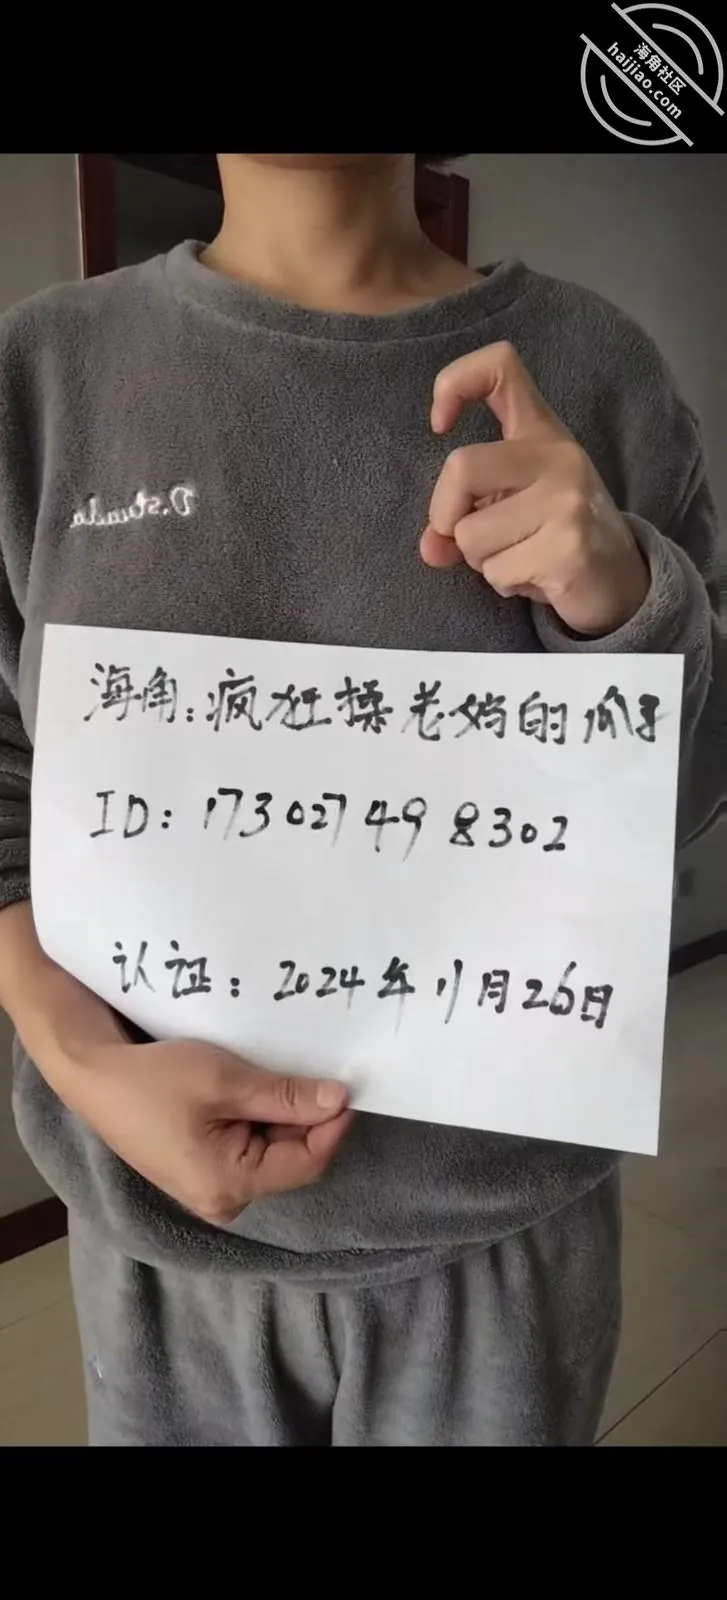 海角社区
haijiao.com
D.studda
海角：疯狂揉老妈的瓜子
ID：17302749 8302
认证：2024年11月26日